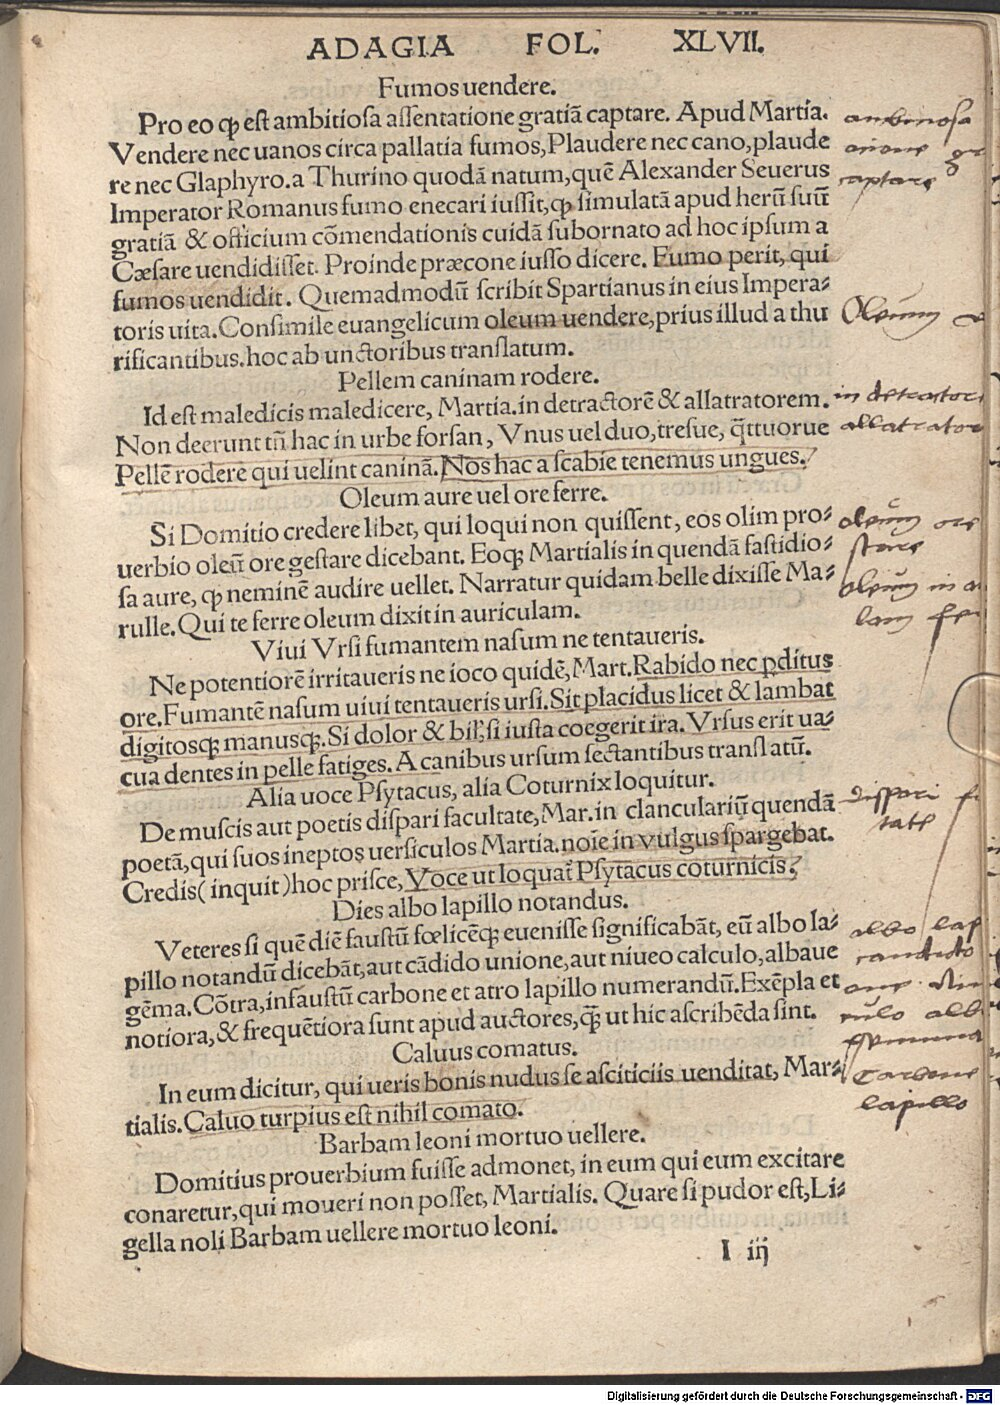 ADAGIA FOL. XLVII.
Fumos uendere.
Pro eo ꝙ est ambitiosa assentatione gratiã captare. Apud Martia.
Vendere nec uanos circa pallatia fumos, Plaudere nec cano, plaude
re nec Glaphyro. a Thurino quodã natum, quẽ Alexander Seuerus
Imperator Romanus fumo enecari iussit, ꝙ simulatã apud herũ suũ
gratiã & officium cõmendationis cuidã subornato ad hoc ipsum a
Cæsare uendidisset. Proinde præcone iusso dicere. Fumo perit, qui
fumos uendidit. Quemadmodũ scribit Spartianus in eius Impera⸗
toris uita. Consimile euangelicum oleum uendere, prius illud a thu
rificantibus. hoc ab unctoribus translatum.
Pellem caninam rodere.
Id est maledicis maledicere, Martia. in detractorẽ & allatratorem.
Non deerunt tñ hac in urbe forsan, Vnus uel duo, tresue, q̃ttuorue
Pellẽ rodere qui uelint caninã. Nos hac a scabie tenemus ungues.
Oleum aure uel ore ferre.
Si Domitio credere libet, qui loqui non quissent, eos olim pro⸗
uerbio oleũ ore gestare dicebant. Eoqꝫ Martialis in quendã fastidio⸗
sa aure, ꝙ neminẽ audire uellet. Narratur quidam belle dixisse Ma⸗
rulle. Qui te ferre oleum dixit in auriculam.
Viui Vrsi fumantem nasum ne tentaueris.
Ne potentiorẽ irritaueris ne ioco quidẽ, Mart. Rabido nec ꝑditus
ore. Fumantẽ nasum uiui tentaueris ursi. Sit placidus licet & lambat
digitosqꝫ manusqꝫ. Si dolor & bilꝭ, si iusta coegerit ira. Vrsus erit ua⸗
cua dentes in pelle fatiges. A canibus ursum sectantibus translatũ.
Alia uoce Psytacus, alia Coturnix loquitur.
De muscis aut poetis dispari facultate, Mar. in clanculariũ quendã
poetã, qui suos ineptos uersiculos Martia. noĩe in vulgus spargebat.
Credis (inquit) hoc prisce, Voce ut loquat̃ Psytacus coturnicis?
Dies albo lapillo notandus.
Veteres si quẽ diẽ faustũ fœlicẽqꝫ euenisse significabãt, eũ albo la⸗
pillo notandũ dicebãt, aut cãdido unione, aut niueo calculo, albaue
gẽma. Cõtra, infaustũ carbone et atro lapillo numerandũ. Exẽpla et
notiora, & frequẽtiora sunt apud auctores, q̃ꝫ ut hic ascribẽda sint.
Caluus comatus.
In eum dicitur, qui ueris bonis nudus se asciticiis uenditat, Mar⸗
tialis. Caluo turpius est nihil comato.
Barbam leoni mortuo uellere.
Domitius prouerbium fuisse admonet, in eum qui eum excitare
conaretur, qui moueri non posset, Martialis. Quare si pudor est, Li⸗
gella noli Barbam uellere mortuo leoni.
I iij
ambitiosa
captare
Oleum
in detractore
allatrator
oleum ore
stare
oleum in
lam fer
dispari
tate
albo lap
candido
culo alb
Carbone
lapillo
Digitalisierung gefördert durch die Deutsche Forschungsgemeinschaft - DFG